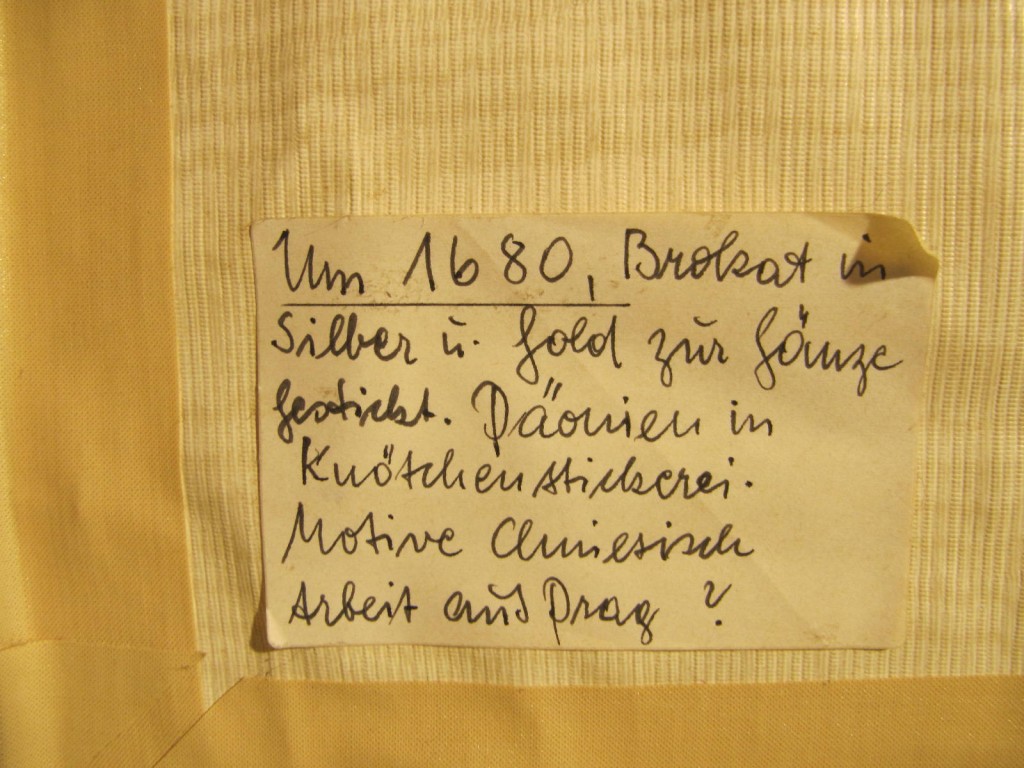 Um 1680, Brokat in
Silber u. Gold zur Gänze
gestickt. Päonien in
Knötchenstickerei.
Motive Chinesisch
Arbeit aus Prag ?